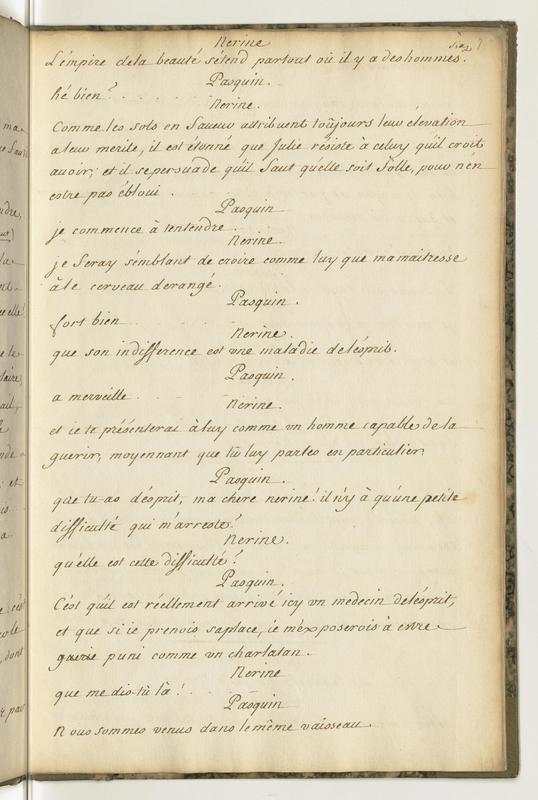 Nerine
L'émpire dela beauté s'étend partout où il y a des hommes.
Pasquin.
hé bien?
Nerine.
Comme les sots en faveur attribuent toûjours leur élevation
a leur merite, il est étonné que Julie résiste à celuy qu'il croit
avoir; et il se persuade qu'il faut qu'elle soit folle, pour n'én
estre pas éblouï.
Pasquin
je commence à t'entendre.
Nerine.
je feray sémblant de croire comme luy que ma maitresse
à le cerveau dérangé.
Pasquin.
fort bien
Nerine.
que son indifference est une maladie de l'ésprit.
Pasquin.
a merveille
Nerine.
et ie te présenterai à luy comme un homme capable de la
guerir, moyennant que tû luy parles en particulier.
Pasquin.
que tu-as d'ésprit, ma chere nerine! il n'y à qu'une petite
difficulté qui m'arreste.
Nerine.
qu'élle est cette difficulté?
Pasquin.
C'ést qu'il est réellement arrivé icy un medecin de l'ésprit,
et que si ie prenois sa place, ie m'éxposerois à estre
puni comme un charlatan.
Nerine
que me dis-tû là!
Pasquin
Nous sommes venus dans le même vaisseau.